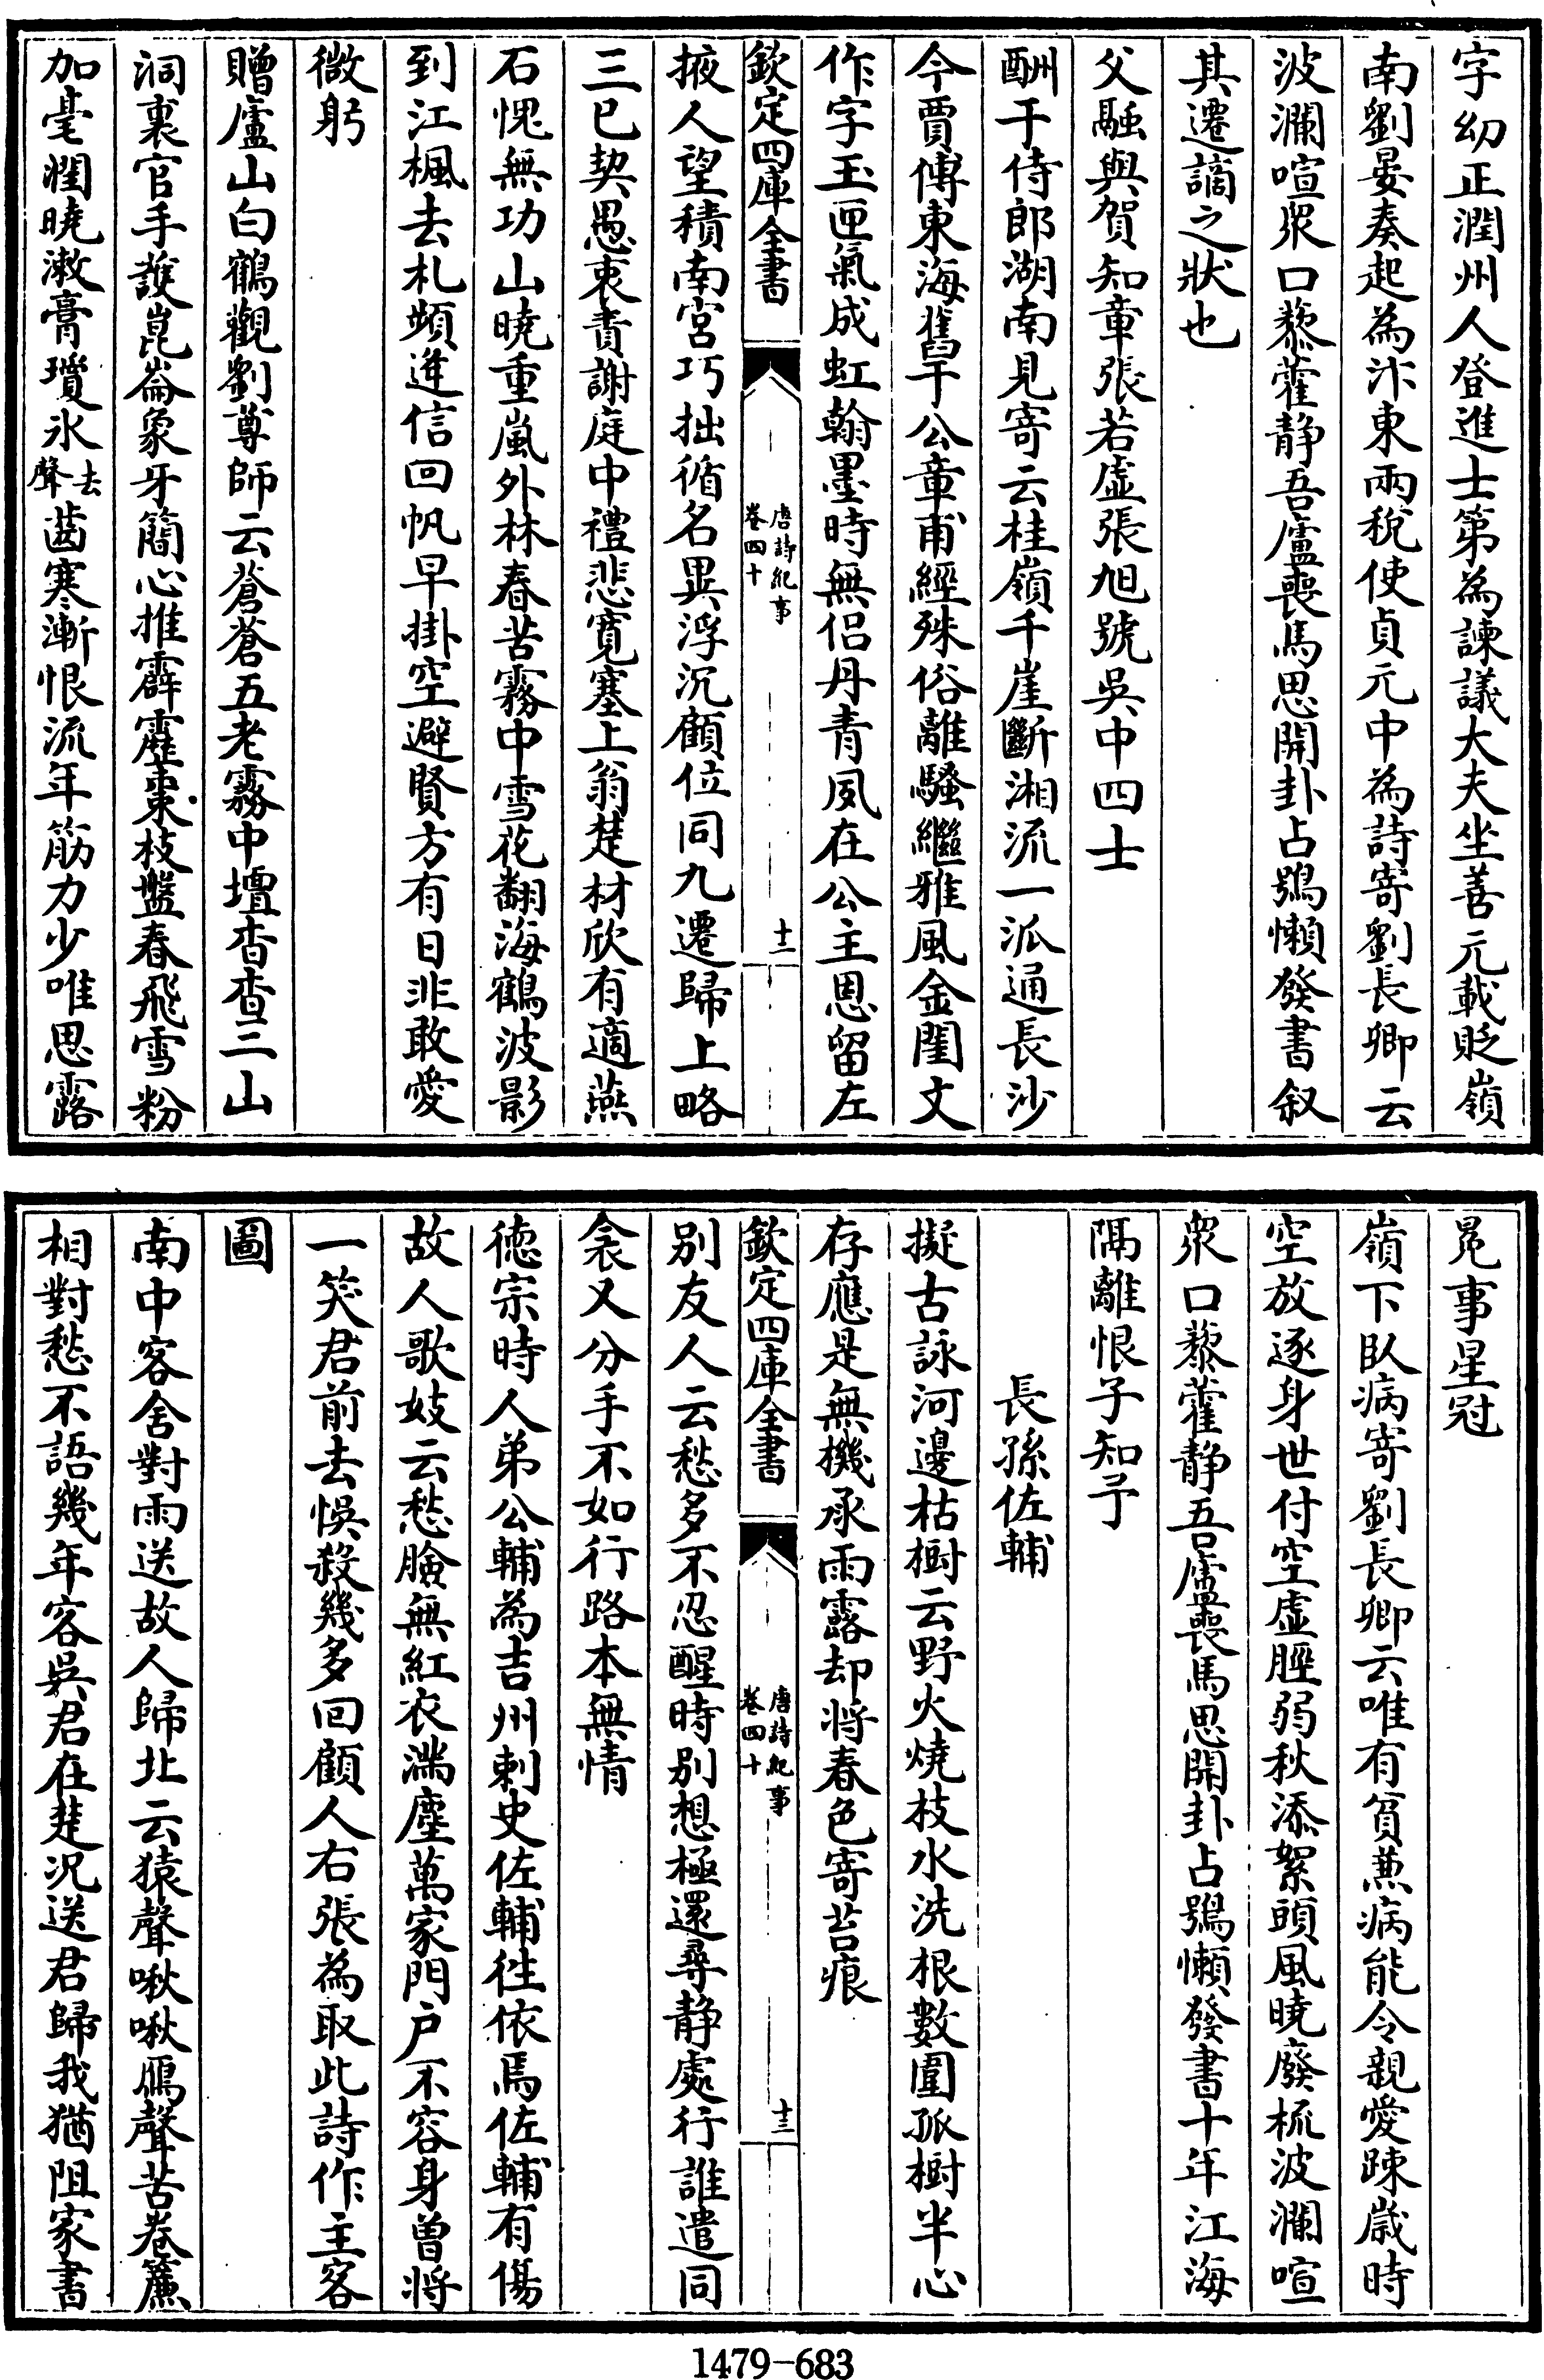 字幼正潤州人登進士第為諫議大夫坐善元載貶嶺
南劉晏奏起為汴東兩稅使貞元中為詩寄劉長卿云
波瀾喧衆口藜藿静吾廬喪馬思開卦占鴞懶發書叙
其遷謫之狀也
父融與賀知章張若虛張旭號吳中四士
酬于侍郎湖南見寄云桂嶺千崖斷湘流一泒通長沙
今賈傅東海舊于公章甫經殊俗離騷繼雅風金閨文
作字玉匣氣成虹翰墨時無侣丹青夙在公主恩留左
欽定四庫全書
唐詩紀事
卷四十
十二
掖人望積南宫巧拙循名異浮沉顧位同九遷歸上略
三已契愚衷責謝庭中禮悲寛塞上翁楚材欣有適燕
石愧無功山曉重嵐外林春苦霧中雪花翻海鶴波影
到江楓去札頻逢信回帆早掛空避賢方有日非敢愛
微躬
贈廬山白鶴觀劉尊師云蒼蒼五老霧中壇杳杳三山
洞裏官手護崑崙象牙簡心推霹靂棗枝盤春飛雪粉
加毫潤曉漱膏瓊冰去聲齒寒漸恨流年筋力少唯思露
冕事星冠
嶺下臥病寄劉長卿云唯有貧兼病能令親愛踈歲時
空放逐身世付空虛脛弱秋添絮頭風曉廢梳波瀾喧
衆口藜藿静吾廬喪馬思開卦占鴞懶發書十年江海
隔離恨子知予
長孫佐輔
擬古詠河邊枯樹云野火燒枝水洗根數圍孤樹半心
存應是無機承雨露却将春色寄苔痕
欽定四庫全書
唐詩紀事
卷四十
十三
别友人云愁多不忍醒時别想極還尋静處行誰遣同
衾又分手不如行路本無情
德宗時人弟公輔為吉州刺史佐輔徃依焉佐輔有傷
故人歌妓云愁臉無紅衣滿塵萬家門户不容身曾将
一笑君前去悞殺幾多回顧人右張為取此詩作主客
圖
南中客舍對雨送故人歸北云猿聲啾啾鴈聲苦卷簾
相對愁不語幾年客吳君在楚況送君歸我猶阻家書
1479-683